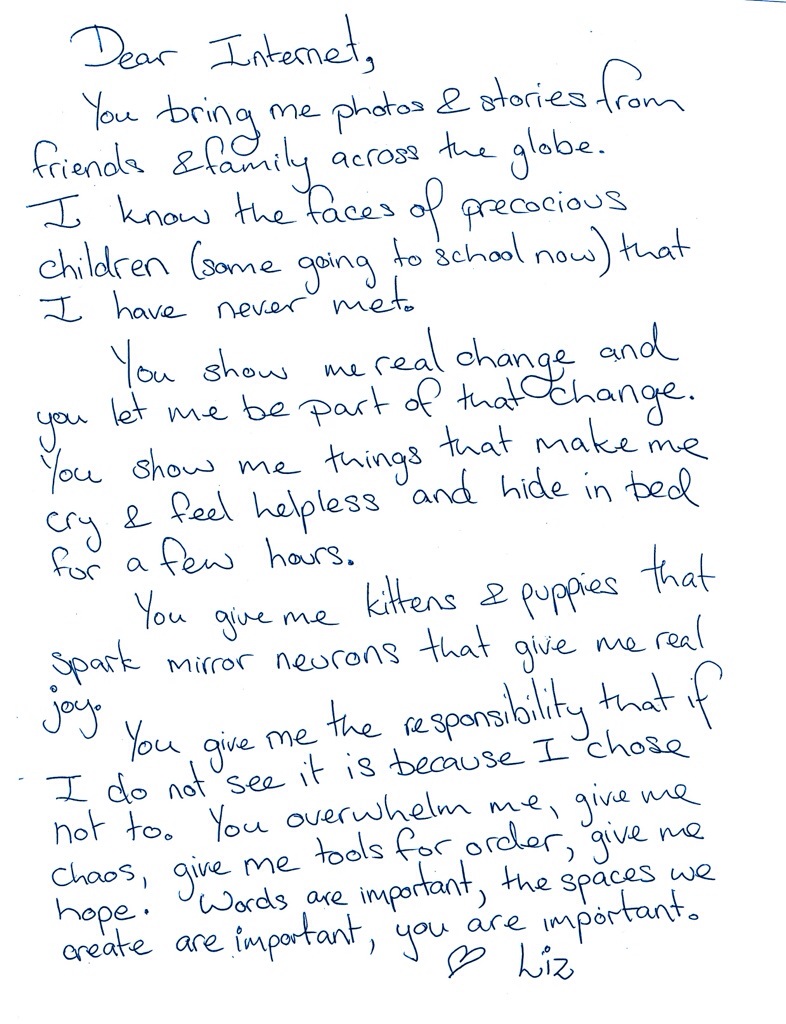 Dear Internet,
You bring me photos & stories from
friends & family across the globe.
I know the faces of precocious
children (some going to school now) that
I have never met.
You show me real change and
you let me be part of that change.
You show me things that make me
cry & feel helpless and hide in bed
for a few hours.
You give me kittens & puppies that
spark mirror neurons that give me real
joy.
You give me the responsibility that if
I do not see it is because I chose
not to. You overwhelm me, give me
chaos, give me tools for order, give me
hope. Words are important, the spaces we
create are important, you are important.
♡ Liz